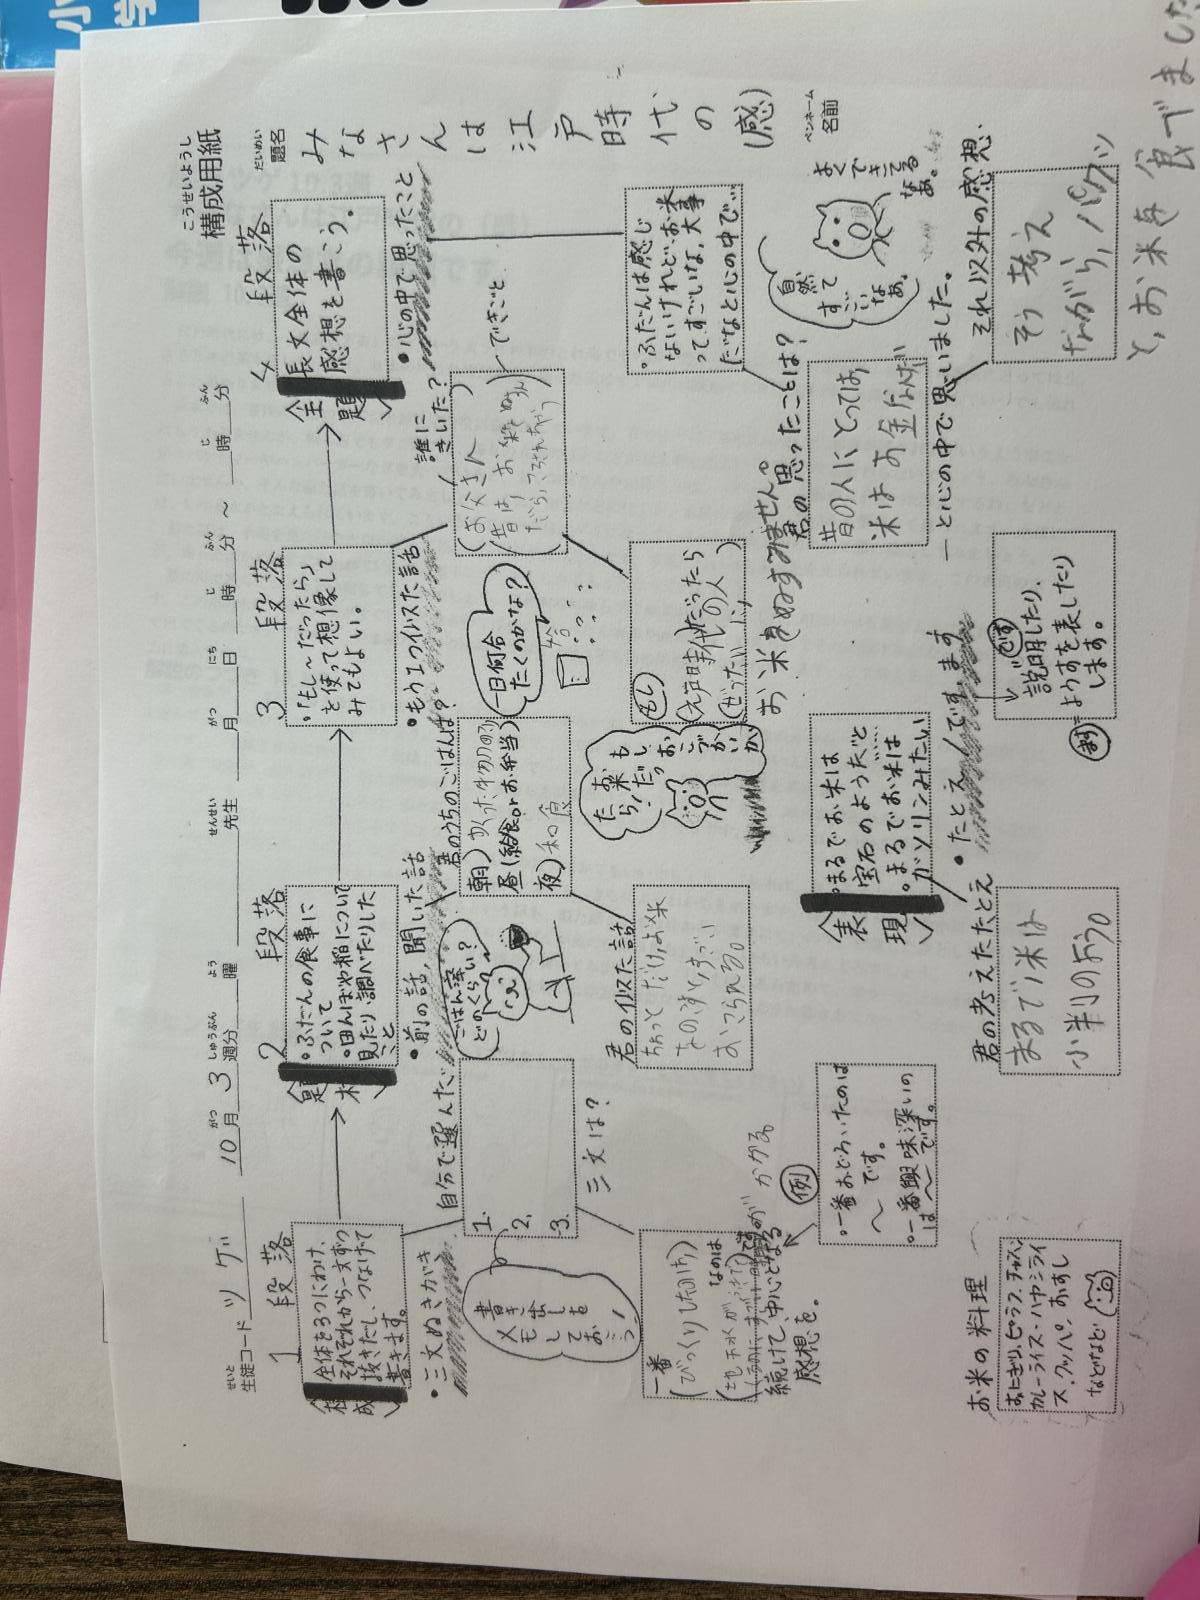 こうせいようし
構成用紙
だいめい
題名
みなさんは江戸時代の(感)
ペンネーム
名前
せいと
生徒コード ツゲ
10月 3週分
がつ しゅうぶん
曜
よう
先生
せんせい
月 日 時 分 ～ 時 分
がつ にち じ ふん じ ふん
1段落
全体を3つにわけ、
それぞれから一文ずつ
抜きだし、つなげて
書きます。
・三文ぬきがき
自分で選んだ
三文は？
1.
2.
3.
書き出し
メモを
して
おこう！
一番
(びっくりした(のは))
なのは
続けて中心となる
感想を。
かかる
例
・一番おどろいたのは
～です。
・一番興味深いの
は～です。
お米の料理
おにぎり、ピラフ、チャーハン
カレーライス・ハヤシライ
ス・クッパ、おすし
などなど
2段落
題材
・ふだんの食事に
ついて
・田んぼや稲について
見たり、調べたりした
こと
・前の話、聞いた話
君のうちのごはんは？
ごはん深い？
どのくらい？
朝)
昼(給食orお弁当)
夜)和食
君の似た話
ちょっとだけお米
なのこすとすごい
おこられる。
もし
お米
だっ
たら！
おこづかいが
表現
・まるでお米は
宝石のようだと
・まるでお米は
ガソリンみたい
・たとえ
君の考えたたとえ
まるで米は
小判のよう。
3段落
・「もし～だったら」
と使って想像して
みてもよい。
・もう1つ似た話
誰に
きいた？
(お父さん)
できごと
一日何合
たくのかな？
もし
(江戸時代の人)だったら
(ぜったいに)
お米をぬすみません。
です ます
説明したり、
ようすを表したり
します。
4段落
全題
長文全体の
感想を書こう。
・心の中で思ったこと
・ふだんは感じ
ないけれど、お米
ってすごいな、大事
だなと心の中で…
君の思ったことは？
自然って
すごい
なぁ。
よく
できてる
なぁ。
昔の人にとっては、
米はお金なんだ
―と心の中で思いました。
それ以外の感想
そう考え
ながら、パクッ
と、お米を食べました